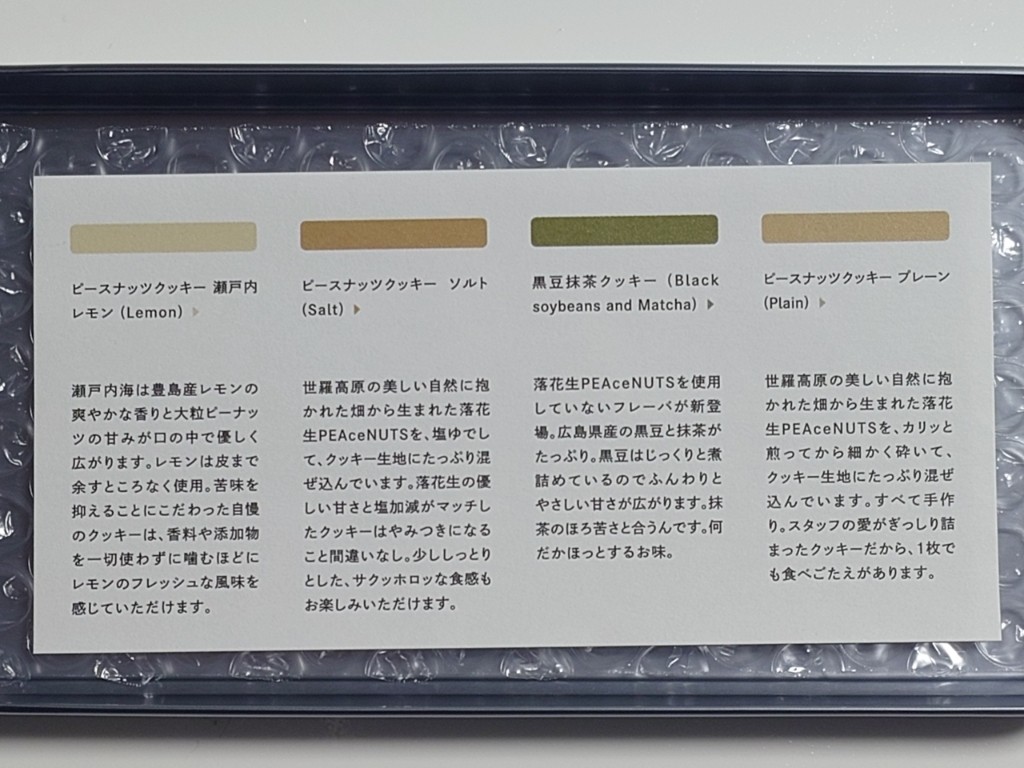 ピースナッツクッキー 瀬戸内
レモン（Lemon）▶
瀬戸内海は豊島産レモンの
爽やかな香りと大粒ピーナッ
ツの甘みが口の中で優しく
広がります。レモンは皮まで
余すところなく使用。苦味を
抑えることにこだわった自慢
のクッキーは、香料や添加物
を一切使わずに噛むほどに
レモンのフレッシュな風味を
感じていただけます。
ピースナッツクッキー ソルト
（Salt）▶
世羅高原の美しい自然に抱
かれた畑から生まれた落花
生PEAceNUTSを、塩ゆでし
て、クッキー生地にたっぷり混
ぜ込んでいます。落花生の優
しい甘さと塩加減がマッチし
たクッキーはやみつきになる
こと間違いなし。少ししっとり
とした、サクッホロッな食感も
お楽しみいただけます。
黒豆抹茶クッキー（Black
soybeans and Matcha）▶
落花生PEAceNUTSを使用
していないフレーバが新登
場。広島県産の黒豆と抹茶が
たっぷり。黒豆はじっくりと煮
詰めているのでふんわりと
やさしい甘さが広がります。抹
茶のほろ苦さと合うんです。何
だかほっとするお味。
ピースナッツクッキー プレーン
（Plain）▶
世羅高原の美しい自然に抱
かれた畑から生まれた落花
生PEAceNUTSを、カリッと
煎ってから細かく砕いて、
クッキー生地にたっぷり混ぜ
込んでいます。すべて手作
り。スタッフの愛がぎっしり詰
まったクッキーだから、1枚で
も食べごたえがあります。